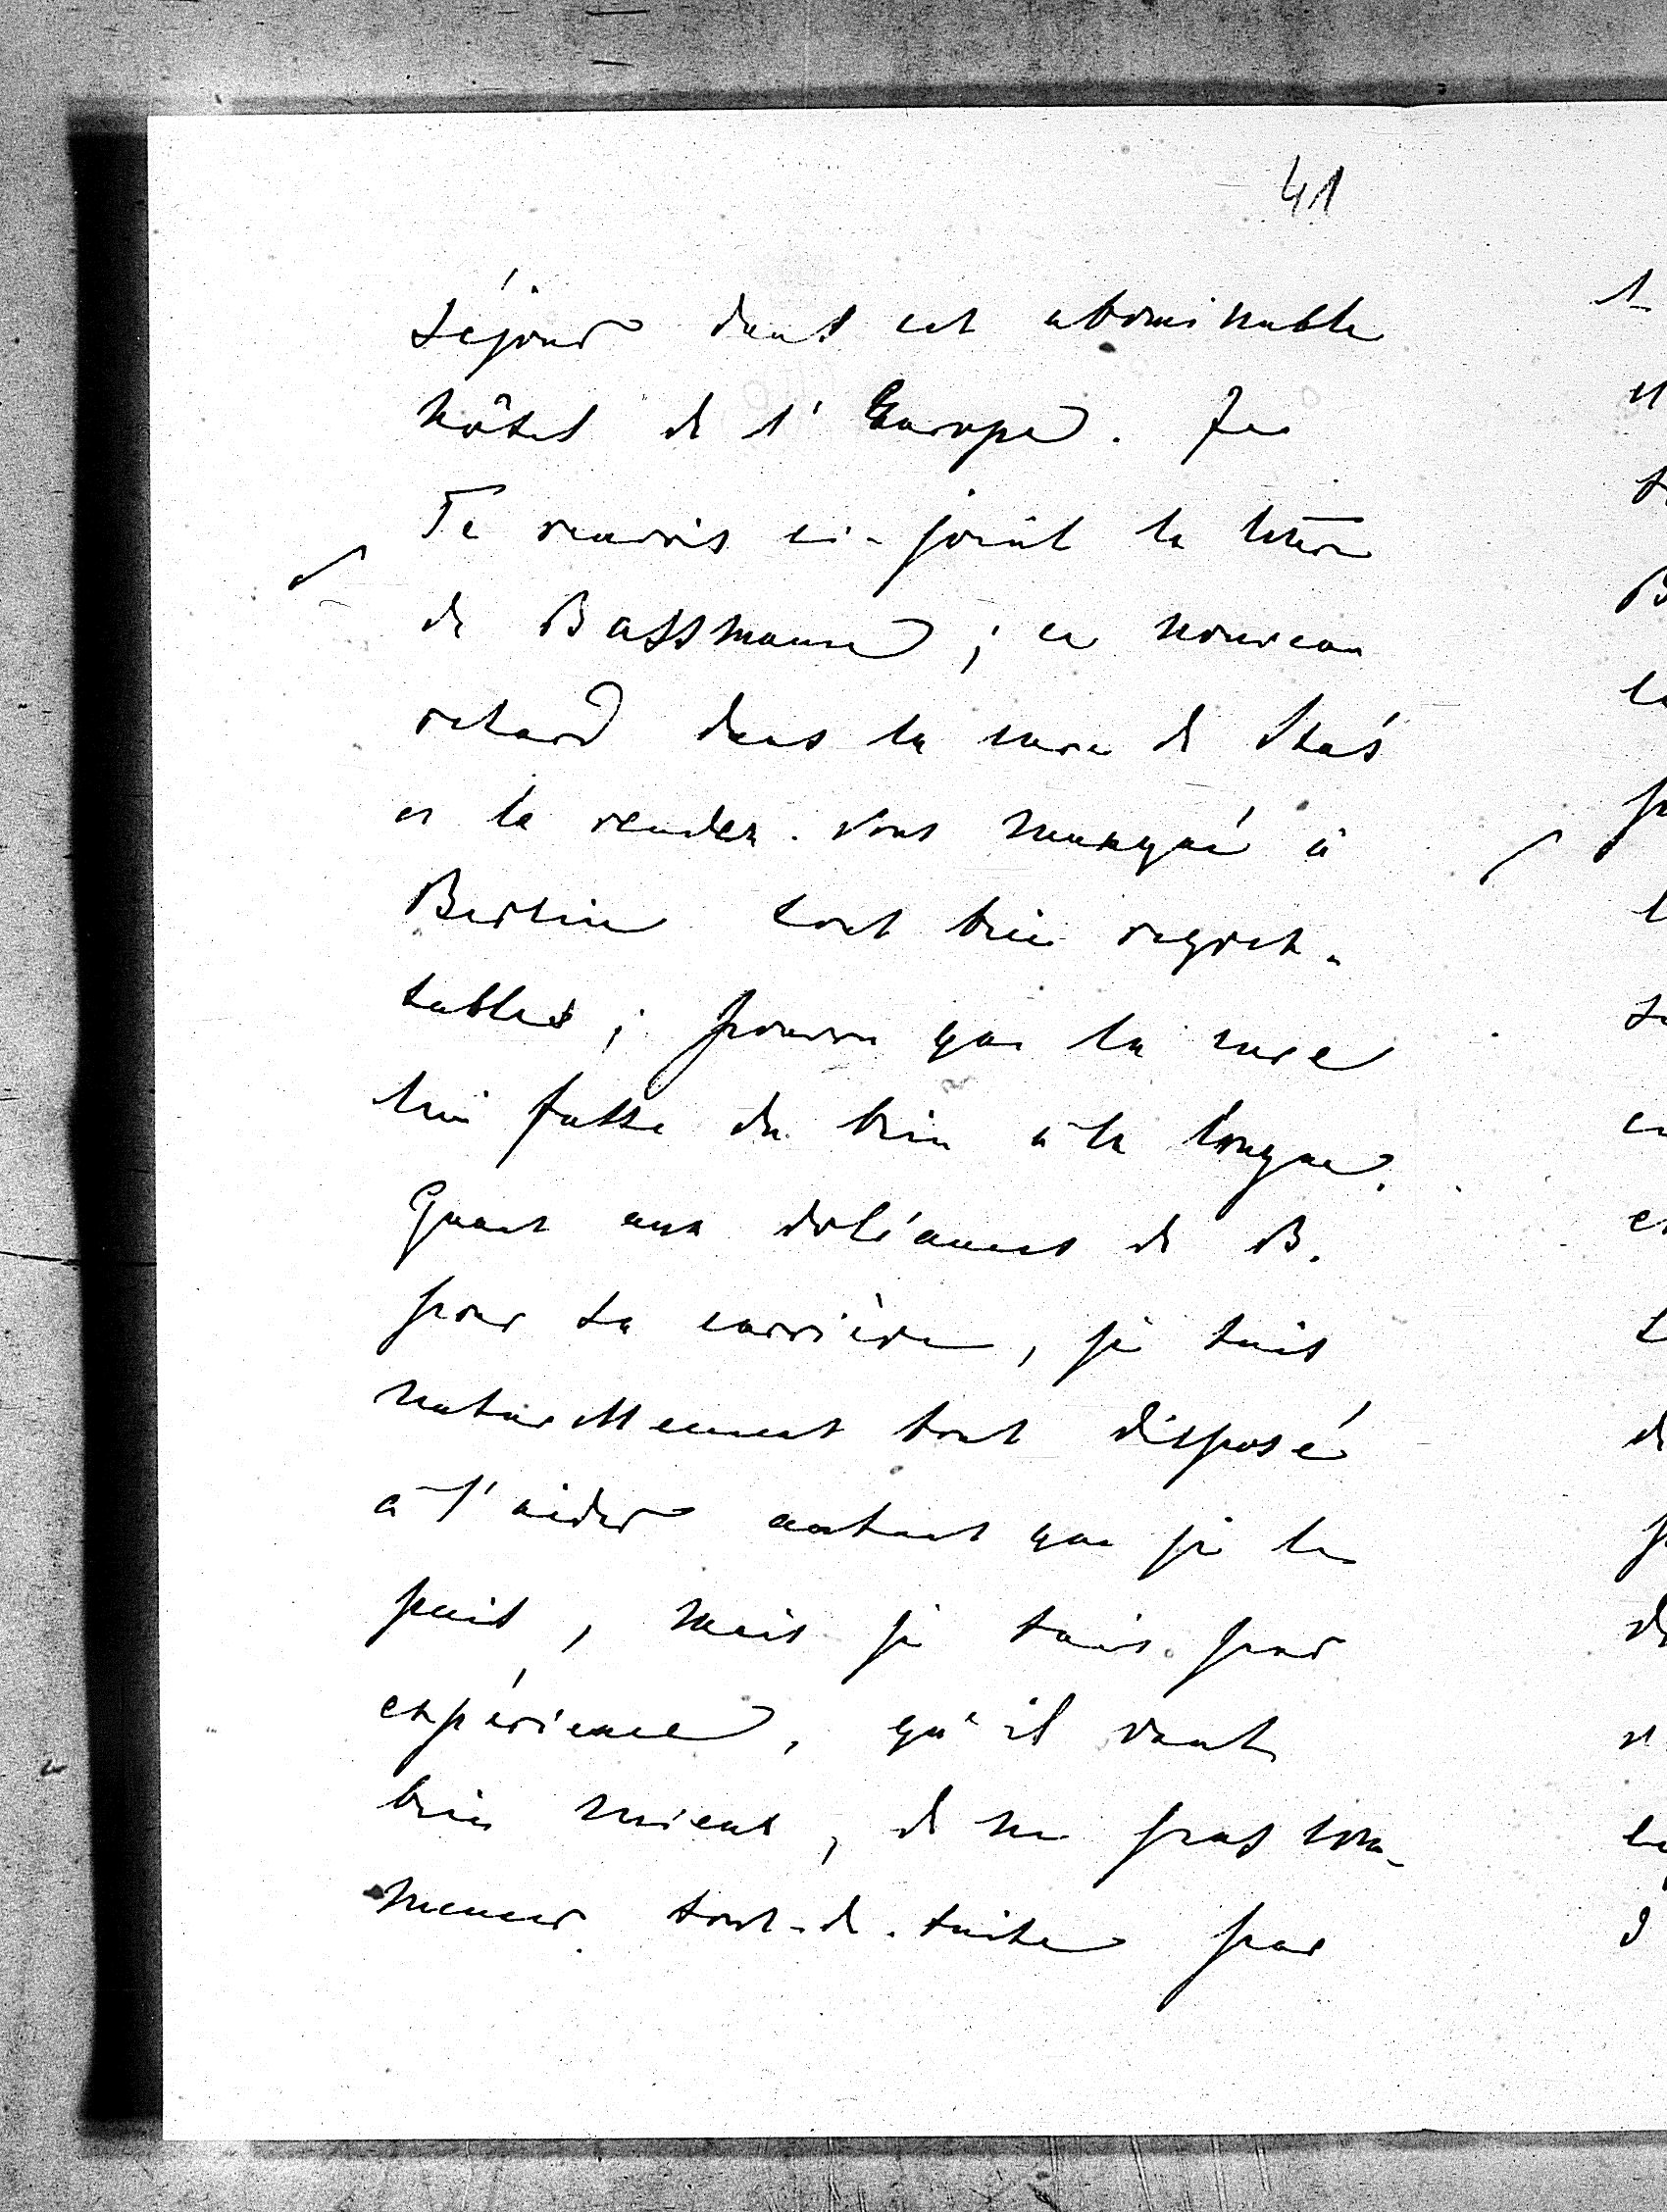 41
séjour dans cet abominable
hôtel de l'Europe. Je
Te renvois ci-joint la lettre
de Bassmann; ce nouveau
retard dans la cure de Stas
et le rendez-vous manqué à
Berlin sont bien regret-
tables; pourvu que la cure
lui fasse du bien à la longue.
Quant aux doléances de B.
pour sa carrière, je suis
naturellement tout disposé
à l'aider autant que je le
puis, mais je sais par
expérience, qu'il vaut
bien mieux, de ne pas com-
mencer tout-de-suite par